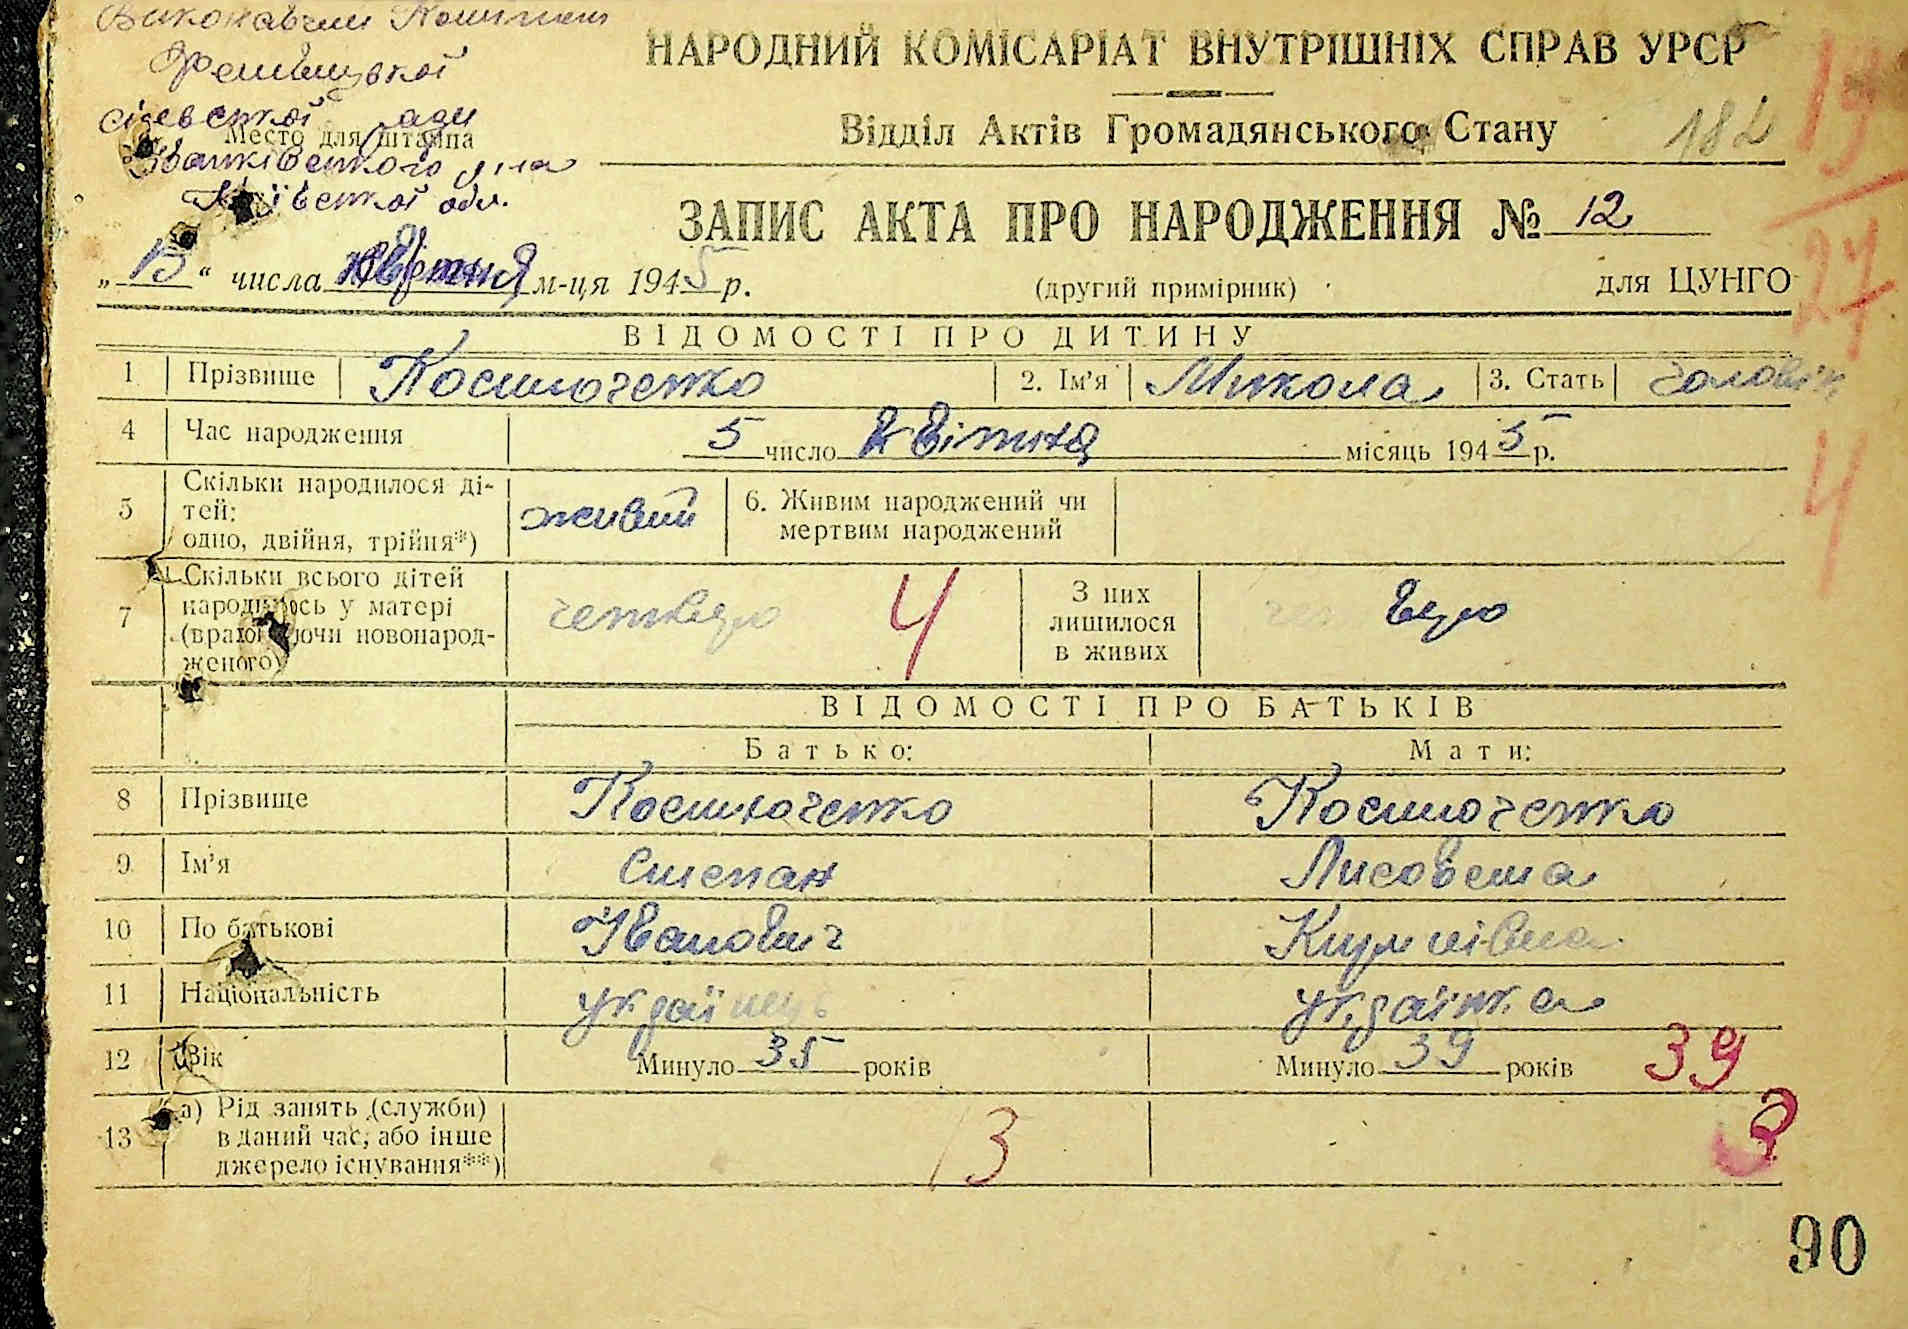 Виконавчий Комітет
сілевської ради
Место для штампа
Іванківського р-на
Київської обл.
НАРОДНИЙ КОМІСАРІАТ ВНУТРІШНІХ СПРАВ УРСР
Відділ Актів Громадянського Стану
182
ЗАПИС АКТА ПРО НАРОДЖЕННЯ № 12
„13“ числа квітня м-ця 1945 р.
(другий примірник)
для ЦУНГО
27
4
ВІДОМОСТІ ПРО ДИТИНУ
1 Прізвище Костюченко 2. Ім'я Микола 3. Стать чоловік
4 Час народження 5 число квітня місяць 1945 р.
5 Скільки народилося ді-
тей:
одно, двійня, трійня*)
живий
6. Живим народжений чи
мертвим народжений
7 Скільки всього дітей
народилось у матері
(враховуючи новонарод-
женого)
четверо 4
З них
лишилося
в живих
ВІДОМОСТІ ПРО БАТЬКІВ
Батько: Мати:
8 Прізвище Костюченко Костюченко
9 Ім'я Степан Лисовета
10 По батькові Іванович
11 Національність українець українка
12 Вік Минуло 35 років Минуло 39 років 39
13 а) Рід занять (служби)
в даний час, або інше
джерело існування**)
13
3
90